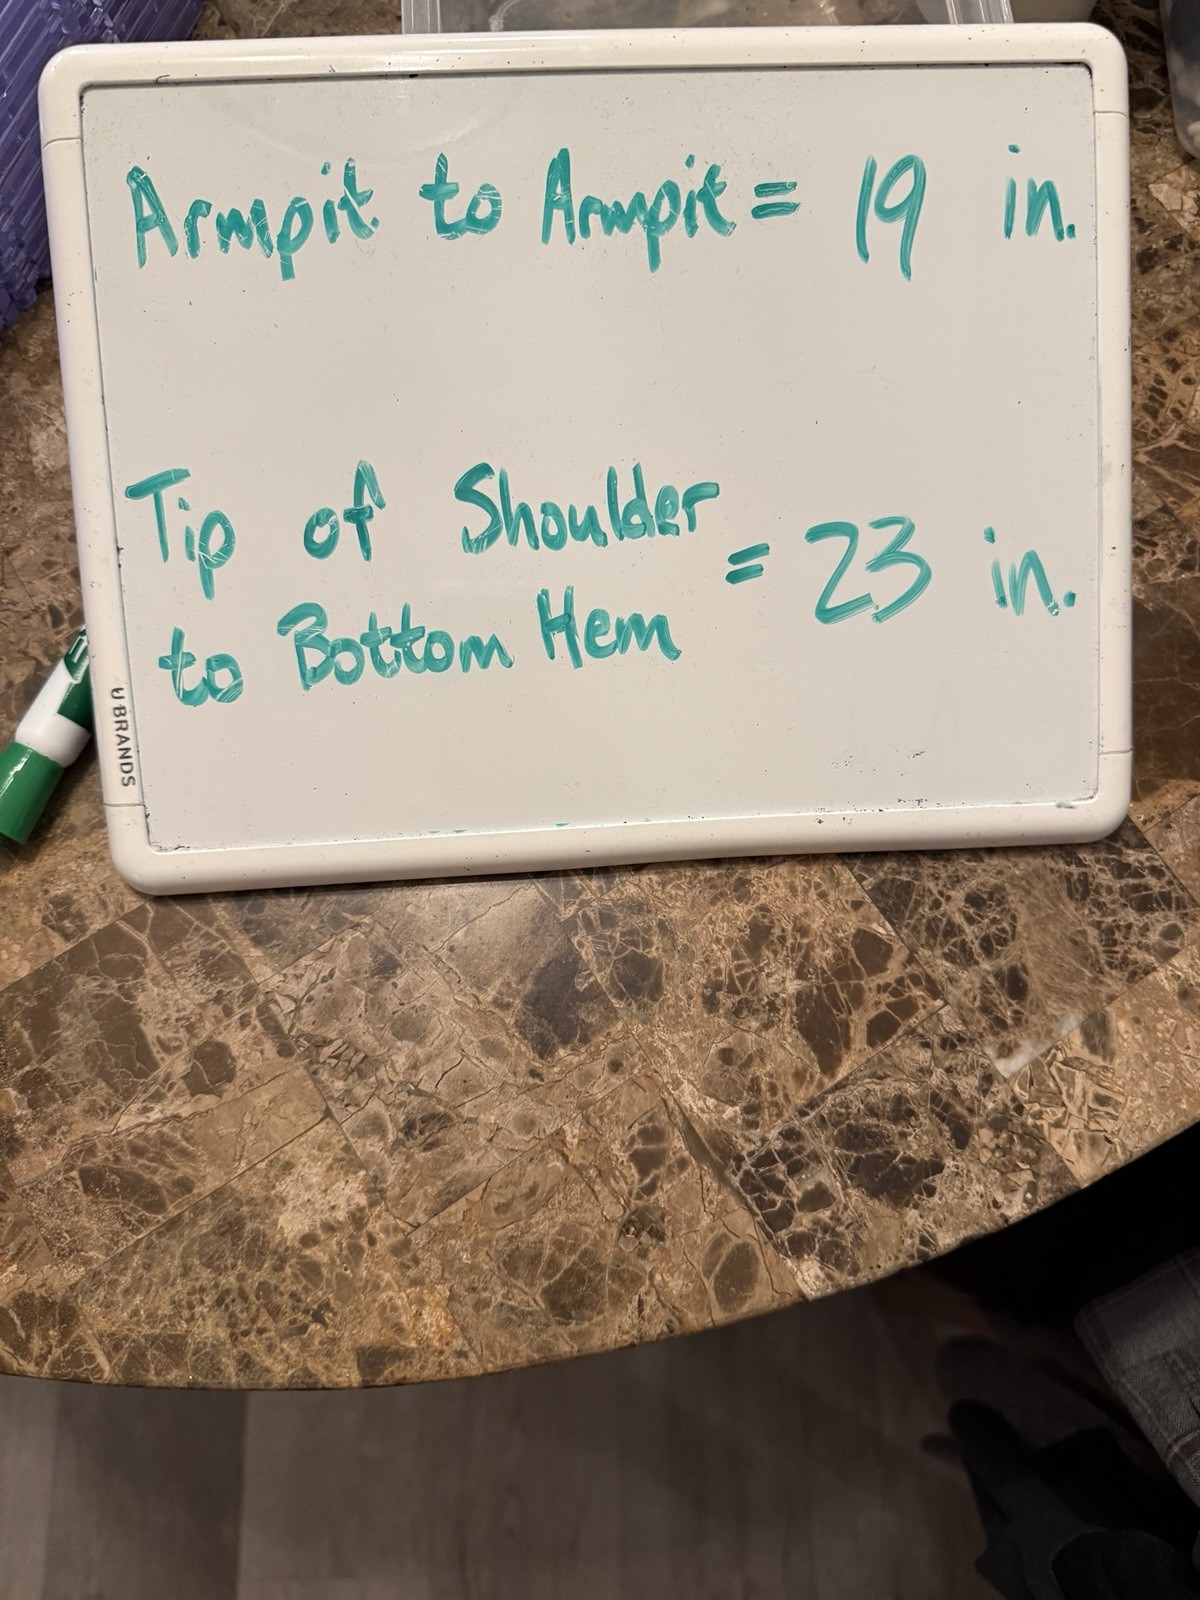 Armpit to Armpit = 19 in.
Tip of Shoulder
to Bottom Hem = 23 in.
U BRANDS